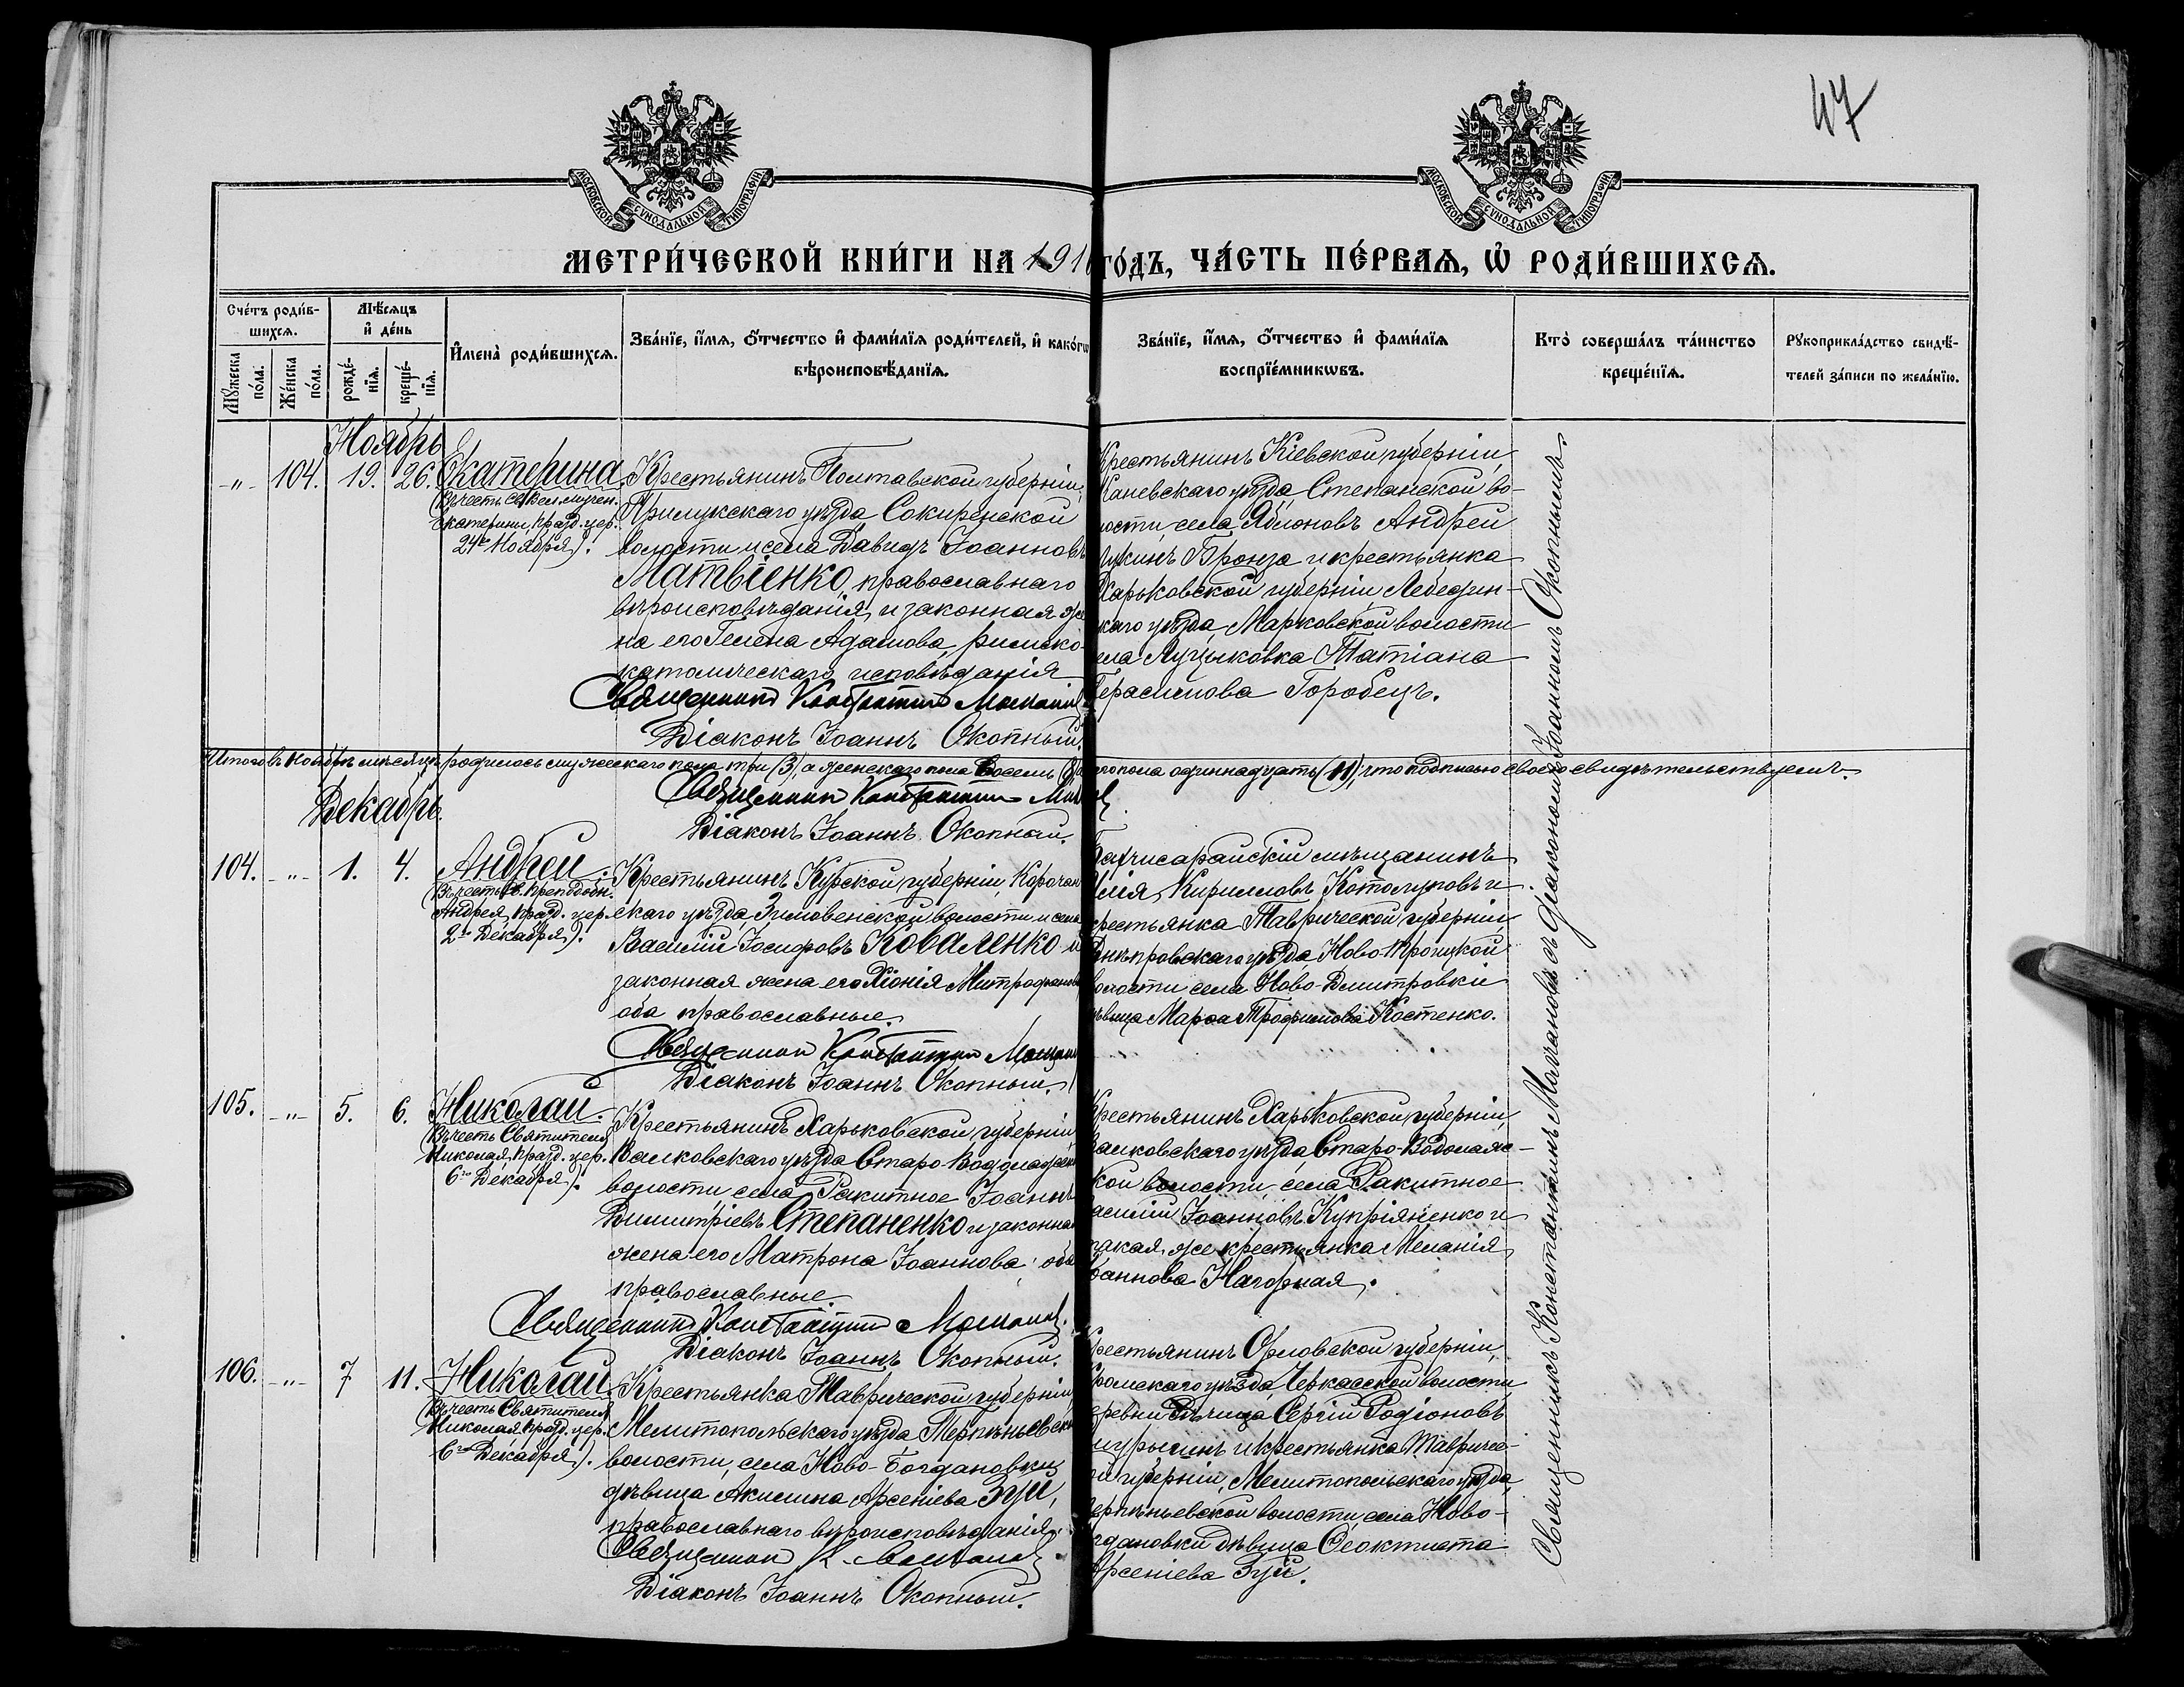 47
МОСКОВСКОЙ СѴНОДАЛЬНОЙ ТИПОГРАФІИ
МОСКОВСКОЙ СѴНОДАЛЬНОЙ ТИПОГРАФІИ
МЕТРИ́ЧЕСКОЙ КНИ́ГИ НА 191
го́дъ, ЧА́СТЬ ПЕ́РВАѦ, Ѡ҆ РОДИ́ВШИХСѦ.
Сче́тъ роди́в-
шихсѧ.
Мꙋ́жеска по́ла.
Же́нска по́ла.
Мѣ́сѧцъ
и҆ де́нь
рожде́-нїѧ.
креще́-нїѧ.
И҆мена̀ роди́вшихсѧ.
Зва́нїе, и҆́мѧ, ѻ҆́тчество и҆ фами́лїѧ роди́телей, и҆ како́гѡ
вѣроисповѣ́данїѧ.
Зва́нїе, и҆́мѧ, ѻ҆́тчество и҆ фами́лїѧ
воспрїе́мникѡвъ.
Кто̀ соверша́лъ та́инство
креще́нїѧ.
Рꙋкоприкла́дство свидѣ́-
телей за́писи по жела́нїю.
Ноябрь
-„- 104. 19. 26. Екатерина
(Въ честь Св. Вел. мучен.
Екатерины, празд. цер.
24го Ноября).
Крестьянинъ Полтавской губерніи,
Прилукскаго уѣзда Сокиренской
волости и села Давидъ Іоанновъ
Матвіенко, православнаго
вѣроисповѣданія, и законная же
на его Гелена Адамова, римско-
католическаго исповѣданія
Священникъ Константинъ Молчанов
Діаконъ Іоаннъ Окопный.
Крестьянинъ Кіевской губерніи,
Каневскаго уѣзда, Степанской во-
лости, села Яблоновъ Андрей
Лукинъ Бронза и крестьянка
Харьковской губерніи Лебедин-
скаго уѣзда, Марковской волости
села Луциковка Татіана
Герасимова Горобецъ.
Священникъ Константинъ Молчановъ съ діакономъ Іоанномъ Окопнымъ.
Итого въ Ноябрѣ мѣсяцѣ родилось мужескаго пола три (3), а женскаго пола восемь (8)
его пола одиннадцать (11), что подписью своею свидѣтельствуемъ.
Священникъ Константинъ Мол
Діаконъ Іоаннъ Окопный.
Декабрь.
104. -„- 1. 4. Андрей.
(Въ честь Св. Преподобн.
Андрея, празд. цер.
2го Декабря).
Крестьянинъ Курской губерніи, Корочан
скаго уѣзда Зимовенской волости и села
Василій Іосифовъ Коваленко и
законная жена его Хіонія Митрофанова
оба православные.
Священникъ Константинъ Молчан
Діаконъ Іоаннъ Окопный.
Бахчисарайскій мѣщанинъ
Илія Кирилловъ Котолуповъ и
крестьянка Таврической губерніи
Днѣпровскаго уѣзда Ново-Троицкой
волости села Ново-Дмитровки
дѣвица Марѳа Трофимова Костенко.
105. -„- 5. 6. Николай.
(Въ честь Святителя
Николая, празд. цер.
6го Декабря).
Крестьянинъ Харьковской губерніи
Валковскаго уѣзда Старо-Водолажск
волости села Ракитное Іоаннъ
Димитріевъ Степаненко и законна
жена его Матрона Іоаннова; оба
православные.
Священникъ Константинъ Молчанов.
Діаконъ Іоаннъ Окопный.
Крестьянинъ Харьковской губерніи
Валковскаго уѣзда, Старо-Водолаж-
кой волости, села Ракитное
асилій Іоанновъ Купріяненко и
такая же крестьянка Меланія
Іоаннова Нагорная.
106. -„- 7 11. Николай.
(Въ честь Святителя
Николая, празд. цер.
6го Декабря).
Крестьянка Таврической губерніи,
Мелитопольскаго уѣзда Терпѣньевск
волости, села Ново-Богдановки
дѣвица Акилина Арсеніева Зуй,
православнаго вѣроисповѣданія.
Священникъ К. Молчанов.
Діаконъ Іоаннъ Окопный.
Крестьянинъ Орловской губерніи,
Кромскаго уѣзда Черкасской волости
еревни Сергій Родіоновъ
и крестьянка Тавричес-
ой губерніи, Мелитопольскаго уѣзда,
ерпѣньевской волости, села Ново-
гдановки дѣвица Ѳеоктиста
Арсеніева Зуй.